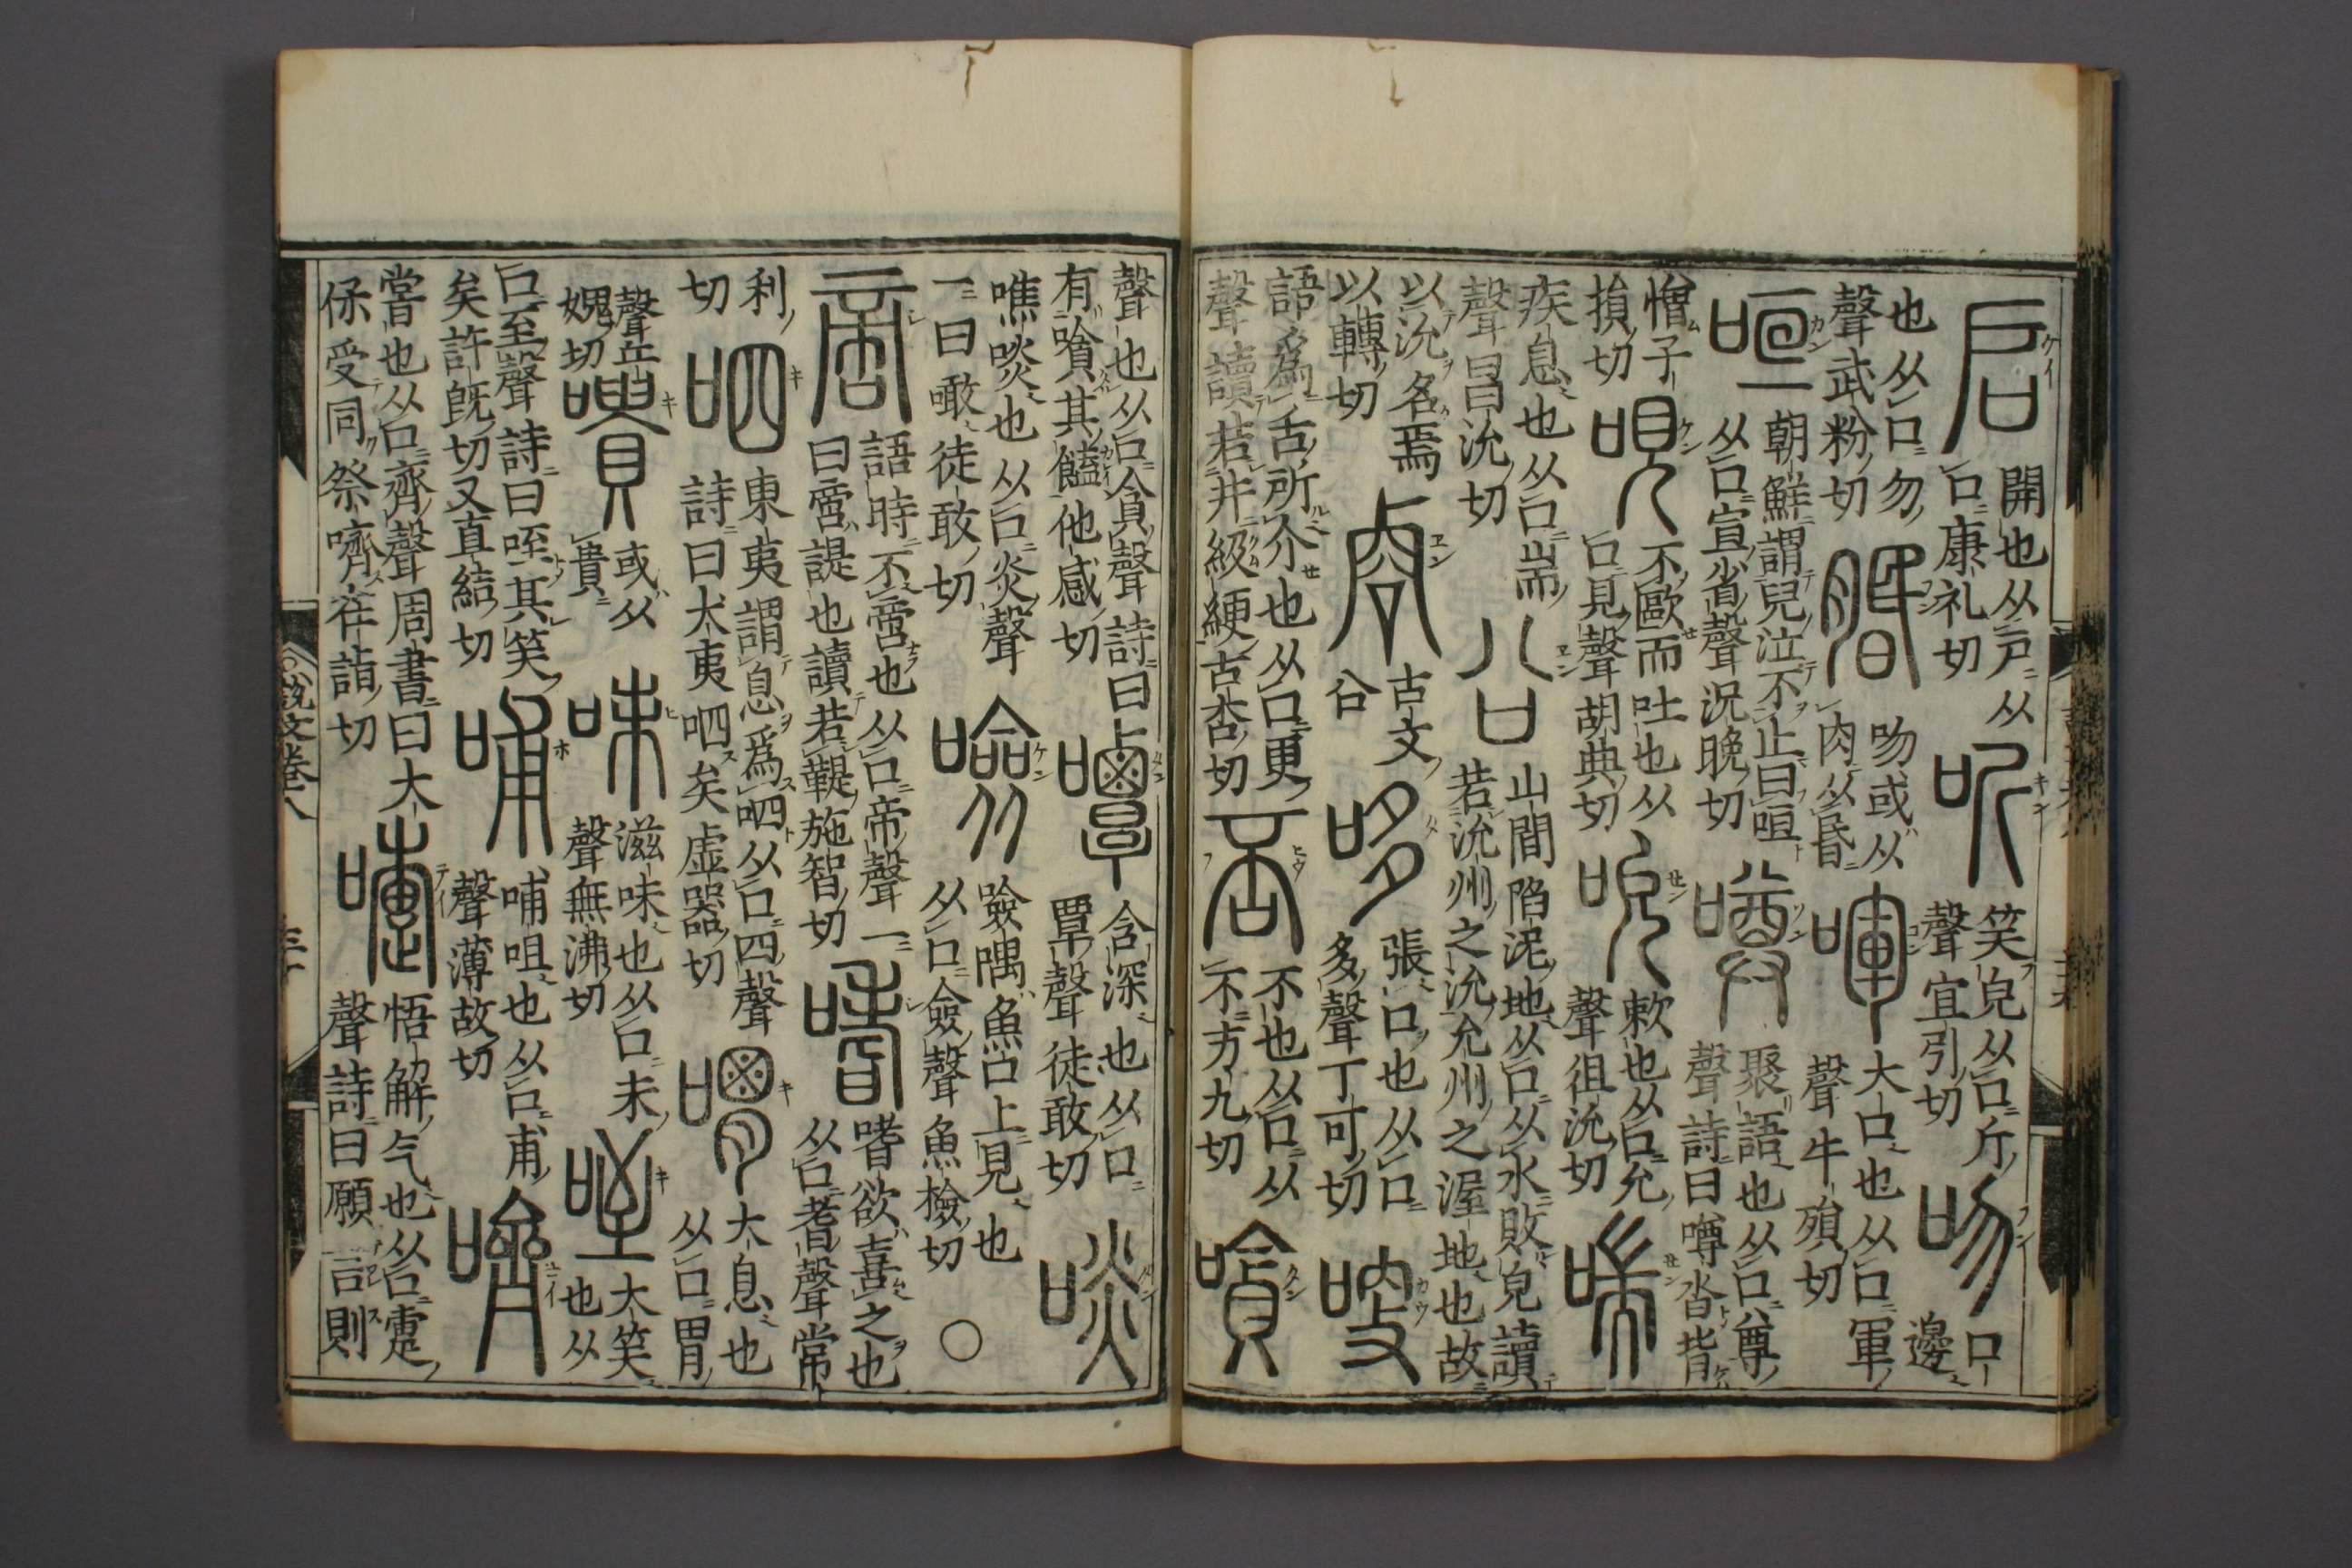 启
開也从戶从
口康礼切
听
笑皃从口斤
聲宜引切
吻
口
邊
也从口勿
聲武粉切
脗
吻或从
肉从昬
喗
大口也从口軍
聲牛殞切
咺
朝鮮謂兒泣不止曰咺
从口宣省聲況晚切
噂
聚語也从口尊
聲詩曰噂沓背
憎子
損切
哯
不歐而吐也从
口見聲胡典切
吮
欶也从口允
聲徂沇切
喘
疾息也从口耑
聲昌沇切
㕣
山間陷泥地从口从水敗皃讀
若沇州之沇允州之渥地也故
以沇名焉
以轉切
㕣
古文
㕣
哆
張口也从口
多聲丁可切
哽
語爲舌所介也从口更
聲讀若井級綆古杏切
否
不也从口从
不方九切
嗿
聲也从口貪聲詩曰
有嗿其饁他感切
嘾
含深也从口
覃聲徒敢切
啖
噍啖也从口炎聲
一曰噉徒敢切
噞
噞隅魚口上見也
从口僉聲魚檢切 ○
啻
語時不啻也从口帝聲一
曰啻諟也讀若鞮施智切
嗜
嗜欲喜之也
从口耆聲常
利
切
呬
東夷謂息爲呬从口四聲
詩曰犬夷呬矣虛器切
喟
大息也
从口胃
聲丘
媿切
嘳
或从
貴
味
滋味也从口未
聲無沸切
咥
大笑
也从
口至聲詩曰咥其笑
矣許旣切又直結切
哺
哺咀也从口甫
聲薄故切
嚌
嘗也从口齊聲周書曰大
保受同祭嚌在詣切
嚏
悟解气也从口疐
聲詩曰願言則
說文卷八